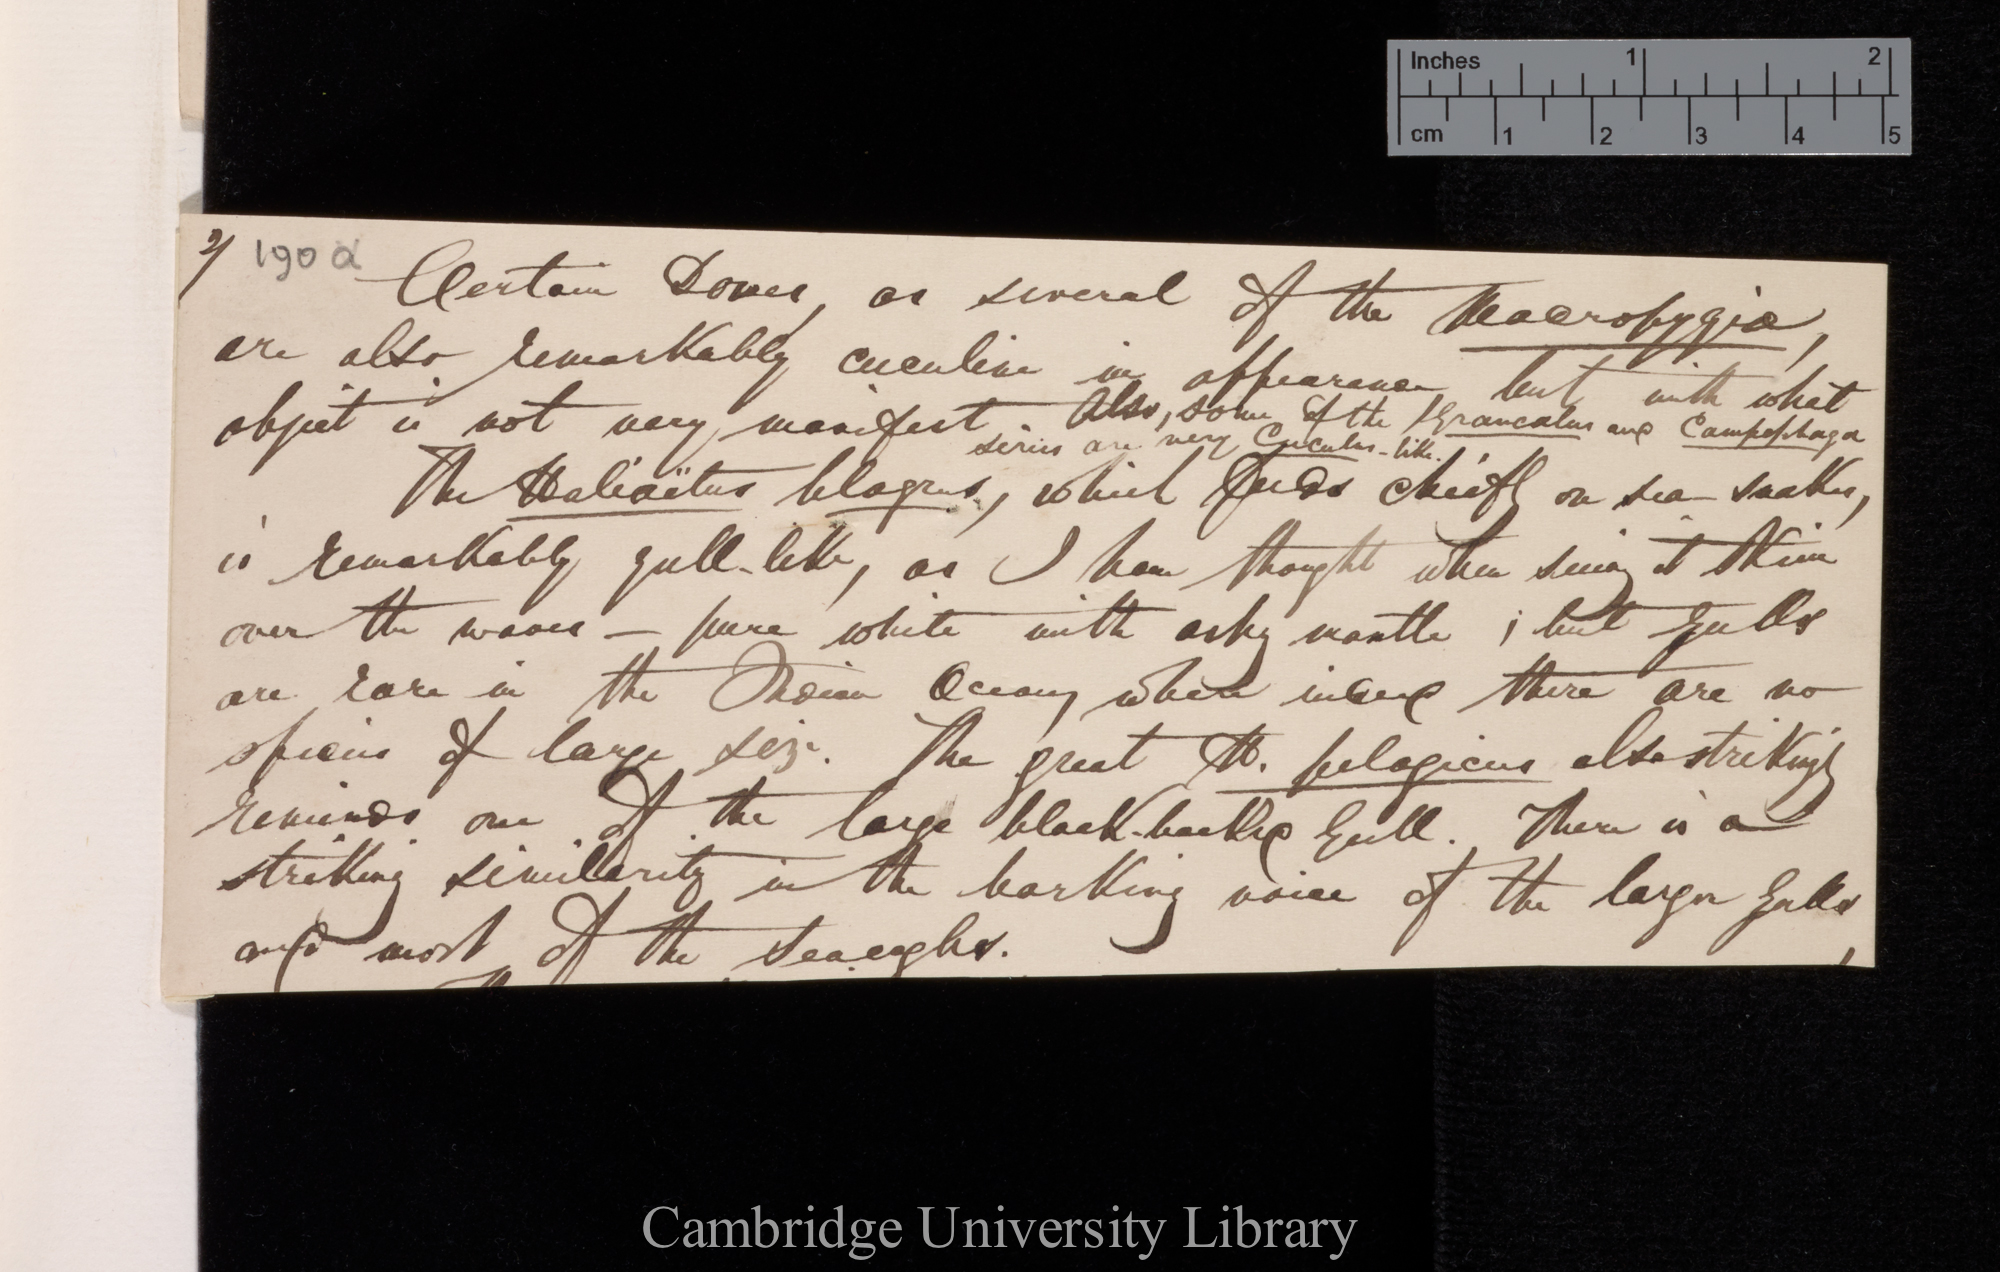 2/ 190 a
Certain Doves, as several of the Macropygia,
are also remarkably cuculine in appearance, but with what
object is not very manifest. Also, some of the Graucalus and Campephaga
series are very Cuculus-like.
The Haliaëtus blagrus, which feeds chiefly on sea snakes,
is remarkably gull-like, as I have thought when seeing it skim
over the waves – pure white with ashy mantle; but Gulls
are rare in the Indian Ocean, where indeed there are no
species of large size. The great H. pelagicus also strikingly
reminds one of the large black-backed Gull. There is a
striking similarity in the barking voice of the larger Gulls
and most of the sea-eagles.
Inches 1 2
cm 1 2 3 4 5
Cambridge University Library